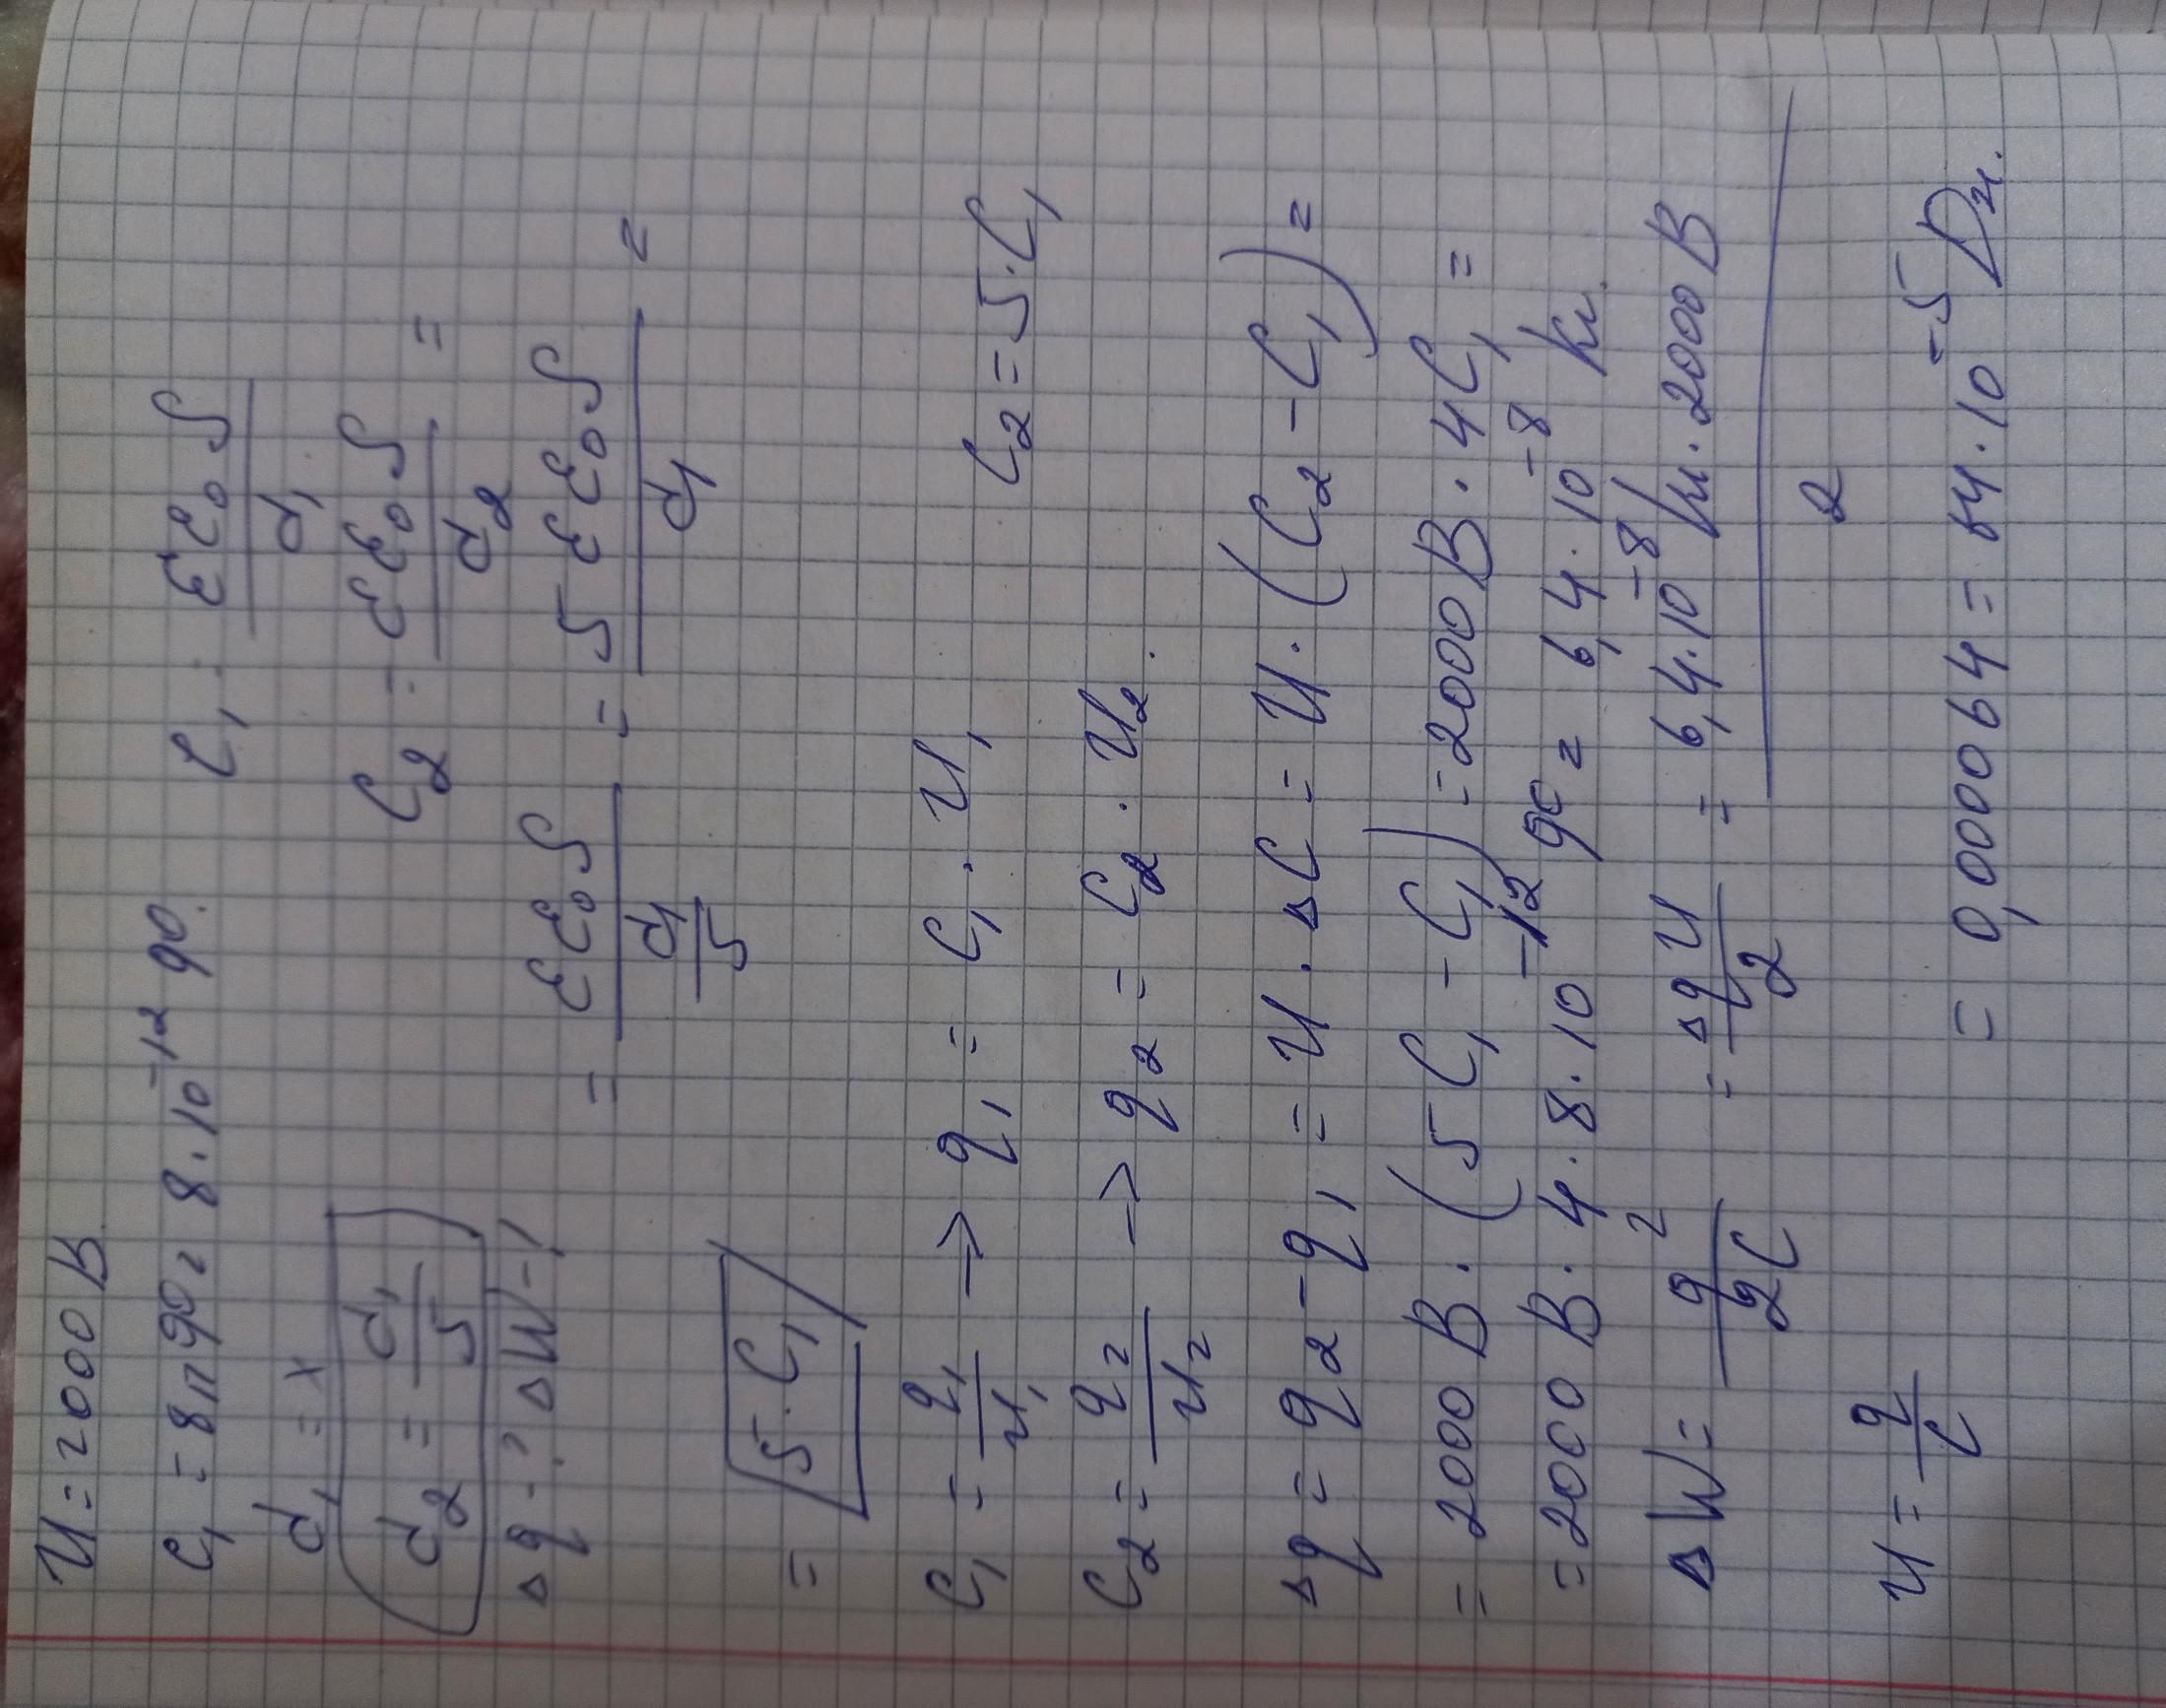 U = 2000 В
C₁ = 8пФ = 8·10⁻¹² Ф.
d₁ = x
d₂ = d₁/5
Δq - ? ΔW - ?
C₁ = εε₀S/d₁
C₂ = εε₀S/d₂ =
= εε₀S/(d₁/5) = 5εε₀S/d₁ =
= 5·C₁
C₂ = 5·C₁
C₁ = q₁/U₁ → q₁ = C₁·U₁
C₂ = q₂/U₂ → q₂ = C₂·U₂.
Δq = q₂ - q₁ = U·ΔC = U·(C₂ - C₁) =
= 2000 В·(5C₁ - C₁) = 2000 В·4C₁ =
= 2000 В·4·8·10⁻¹² Ф = 6,4·10⁻⁸ Кл.
ΔW = q²/2C = ΔqU/2 = 6,4·10⁻⁸ Кл·2000 В/2
U = q/C
= 0,000064 = 64·10⁻⁵ Дж.